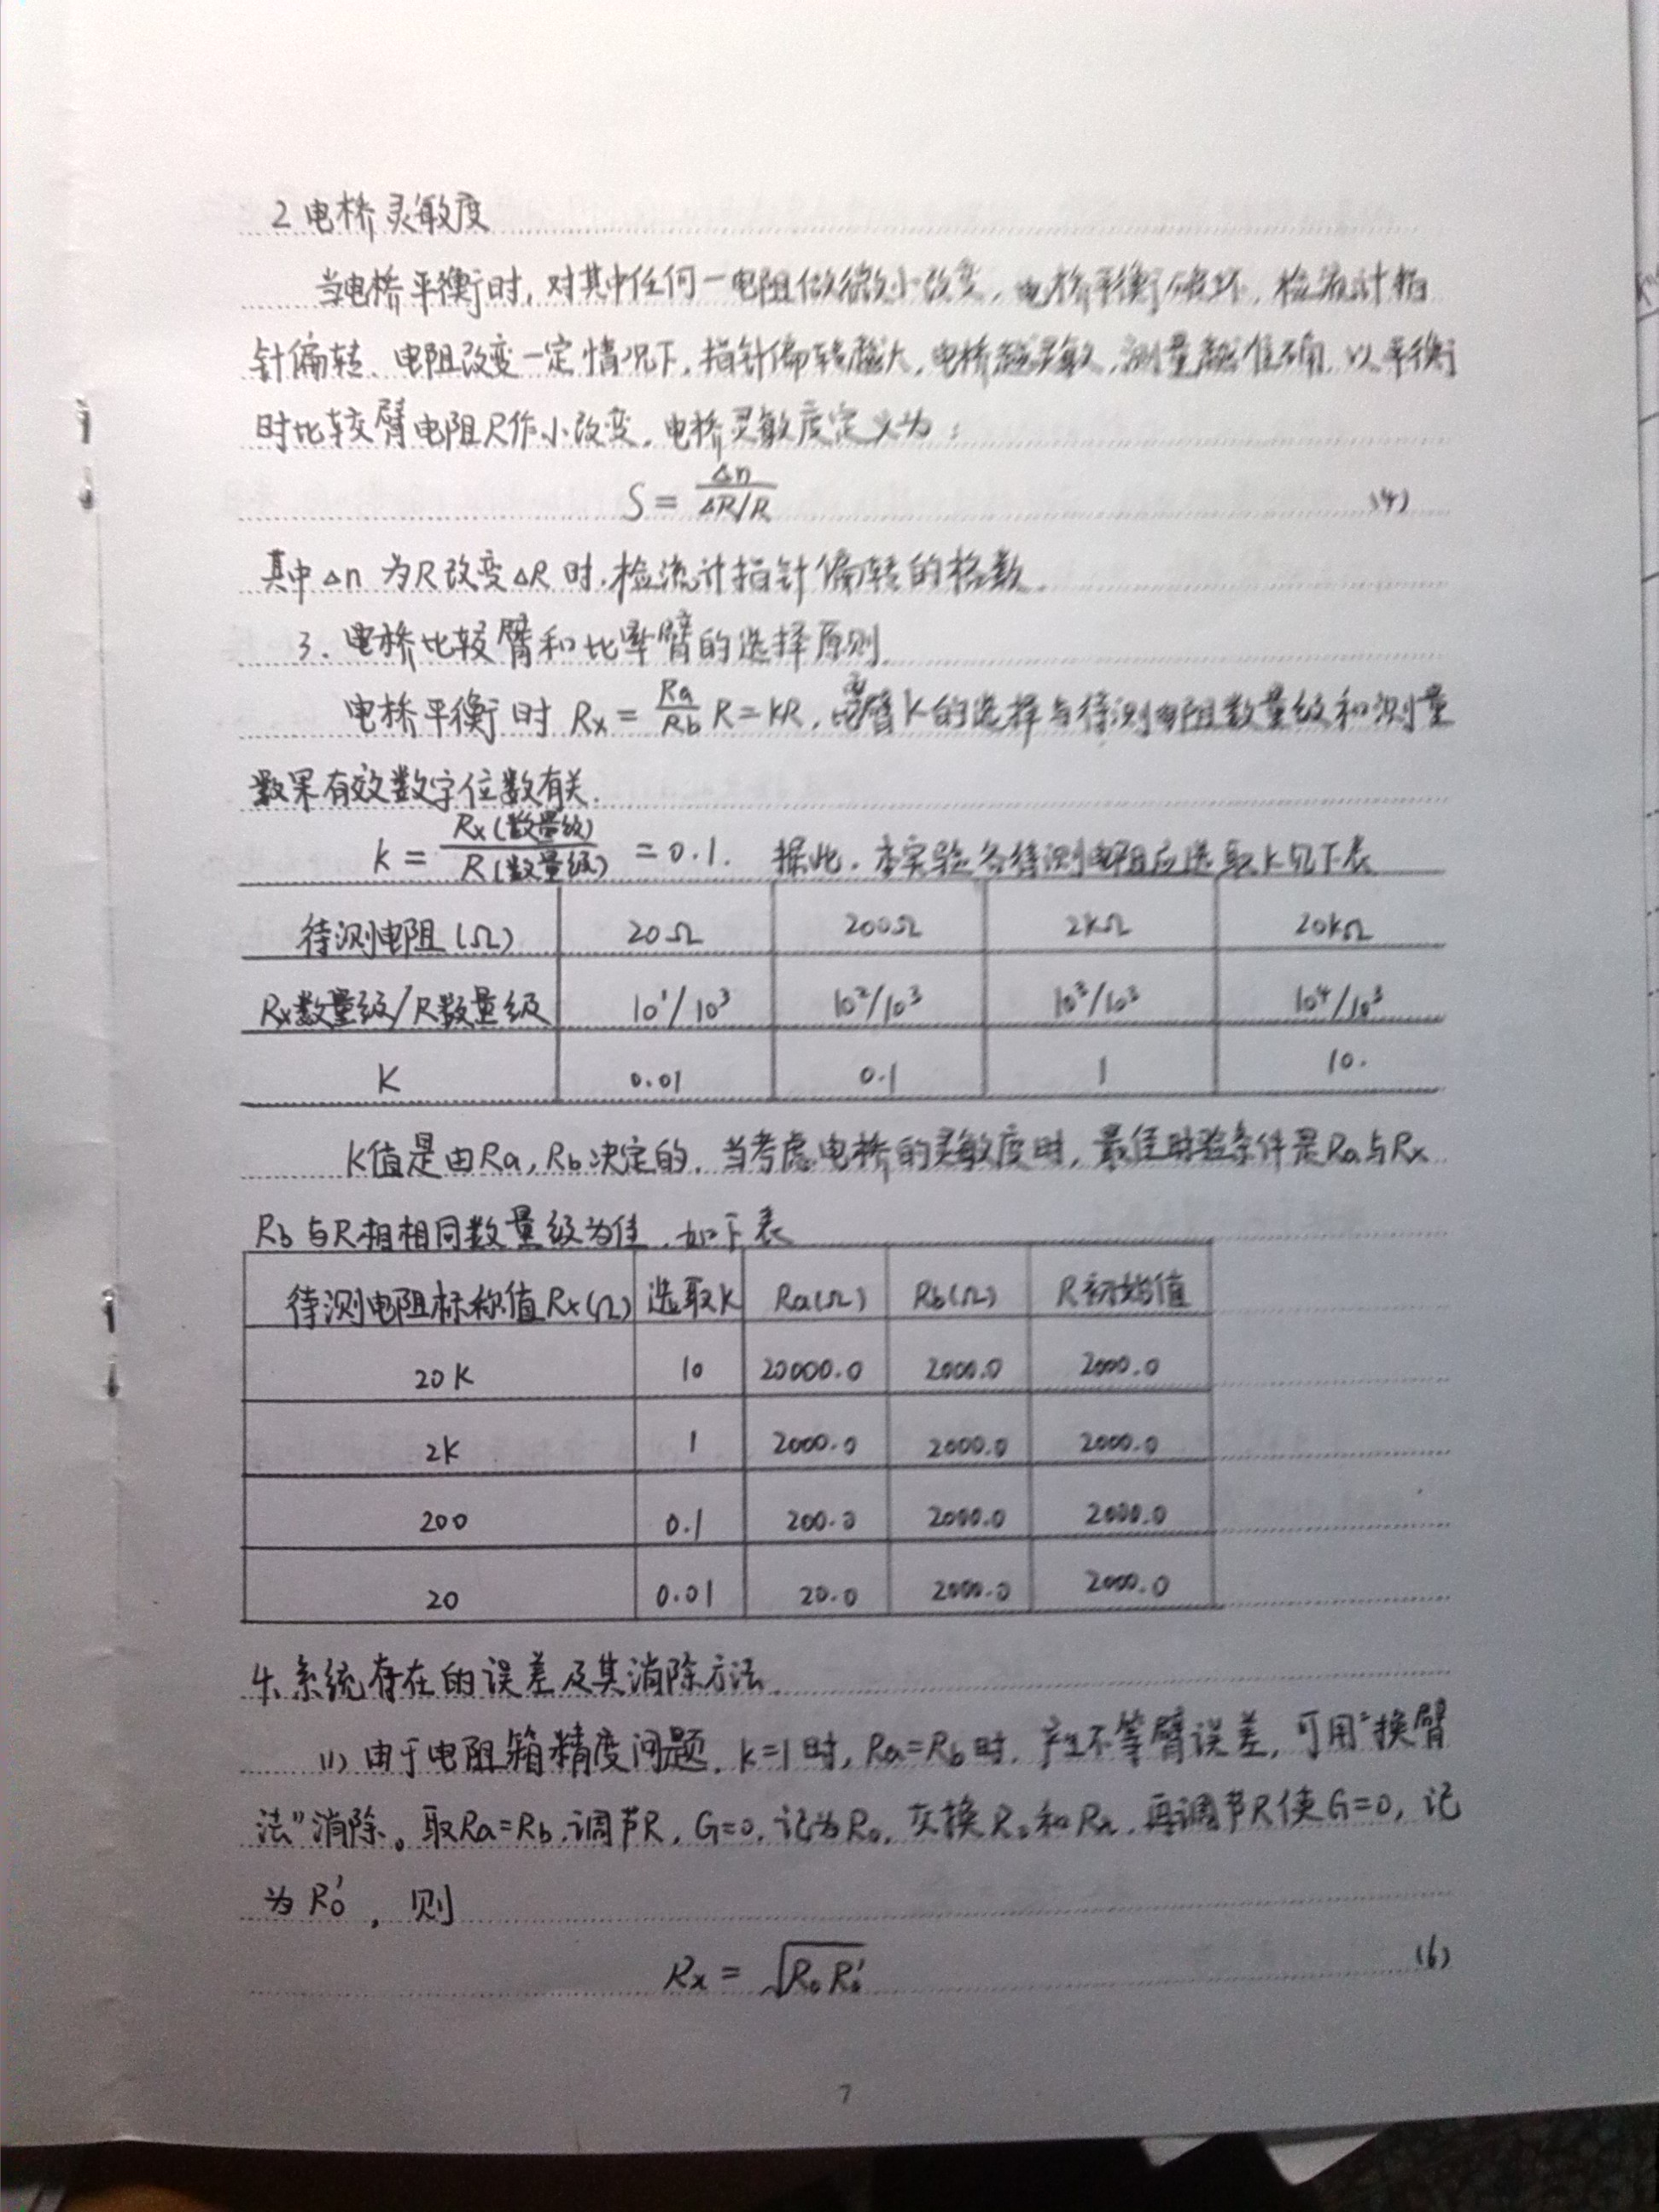 2 电桥灵敏度
当电桥平衡时，对其中任何一电阻做微小改变，电桥平衡破坏，检流计指
针偏转、电阻改变一定情况下，指针偏转越大，电桥越灵敏，测量越准确，以平衡
时比较臂电阻R作小改变，电桥灵敏度定义为：
S = Δn / (ΔR/R) (4)
其中Δn 为R改变ΔR时，检流计指针偏转的格数
3. 电桥比较臂和比率臂的选择原则
电桥平衡时 Rx = Ra/Rb R = KR，比率臂K的选择与待测电阻数量级和测量
数果有效数字位数有关.
k = Rx(数量级) / R(数量级) = 0.1. 据此，本实验各待测电阻应选取k见下表
待测电阻(Ω) 20Ω 200Ω 2kΩ 20kΩ
Rx数量级/R数量级 10¹/10³ 10²/10³ 10³/10³ 10⁴/10³
K 0.01 0.1 1 10.
K值是由Ra, Rb决定的，当考虑电桥的灵敏度时，最佳实验条件是Ra与Rx
Rb与R相相同数量级为佳，如下表
待测电阻标称值Rx(Ω) 选取K Ra(Ω) Rb(Ω) R初始值
20K 10 20000.0 2000.0 2000.0
2K 1 2000.0 2000.0 2000.0
200 0.1 200.0 2000.0 2000.0
20 0.01 20.0 2000.0 2000.0
4. 系统存在的误差及其消除方法
(1) 由于电阻箱精度问题，k=1时，Ra=Rb时，产生不等臂误差，可用“换臂
法”消除。取Ra=Rb，调节R，G=0，记为R₀，交换R₀和Rx，再调节R使G=0，记
为R₀′，则
Rx = √(R₀R₀′) (6)
7